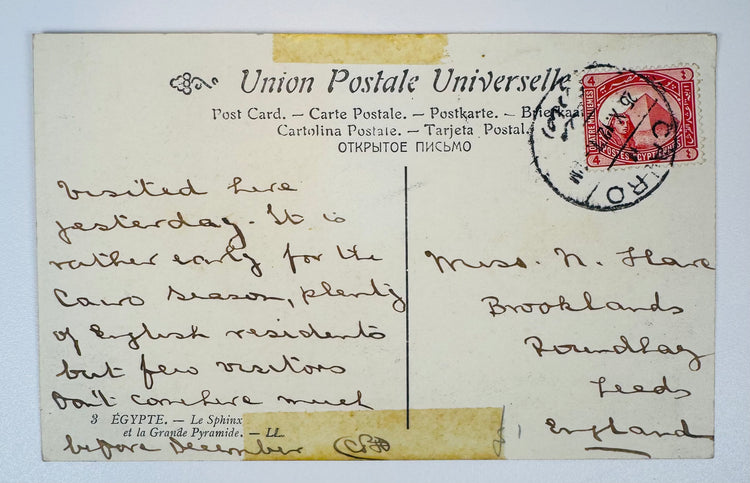 Union Postale Universelle
Post Card. — Carte Postale. — Postkarte. — Briefkaa
Cartolina Postale. — Tarjeta Postal.
ОТКРЫТОЕ ПИСЬМО
Visited here
yesterday. It is
rather early for the
Cairo Season, plenty
of English residents
but few visitors
Don't come here much
before December
3 ÉGYPTE. — Le Sphinx
et la Grande Pyramide. — LL
Miss. N. Hare
Brooklands
Roundhay
Leeds
England
CAIRO
QUATRE MILLIEMES
4 POSTES EGYPTIENNES 4